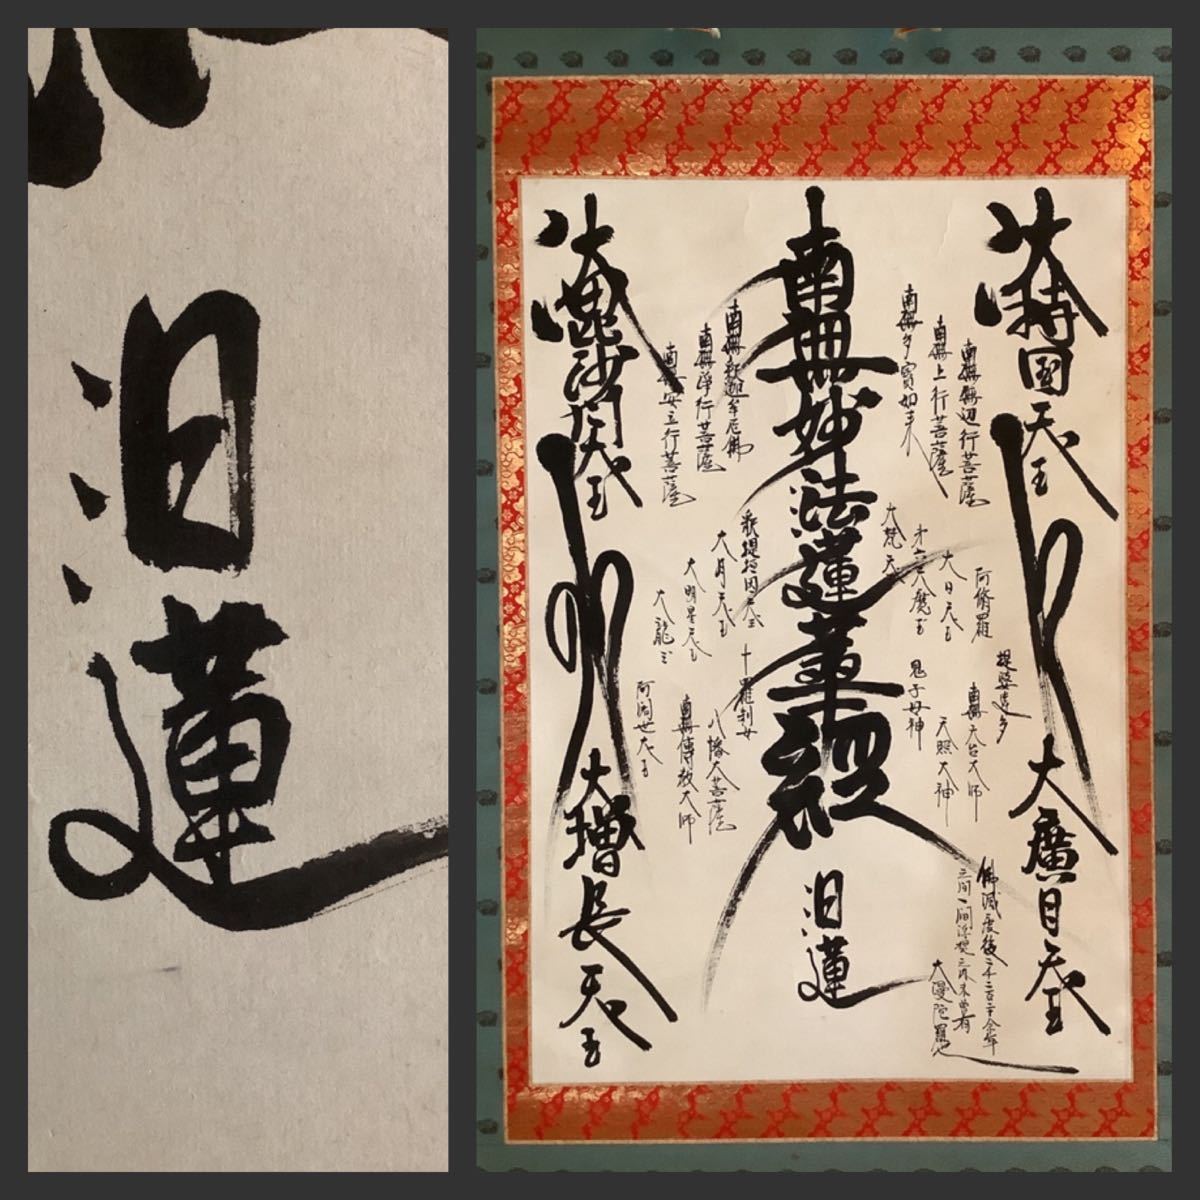 汨蓮
大持国天王
大廣目天王
南無無辺行菩薩
南無上行菩薩
南無多寳如来
阿脩羅
大日天王
第六天魔王
大梵天
提婆達多
南無天台大師
天照大神
鬼子母神
佛滅度後二千二百二十余年
之間一閻浮提之内未曽有
大漫陀羅也
南無妙法蓮華經
汨蓮
南無釈迦牟尼佛
南無浄行菩薩
南無安立行菩薩
釈提桓因天王
大月天王
大明星天王
大龍王
十羅刹女
八幡大菩薩
南無傳教大師
阿闍世大王
大毘沙門天王
大増長天王